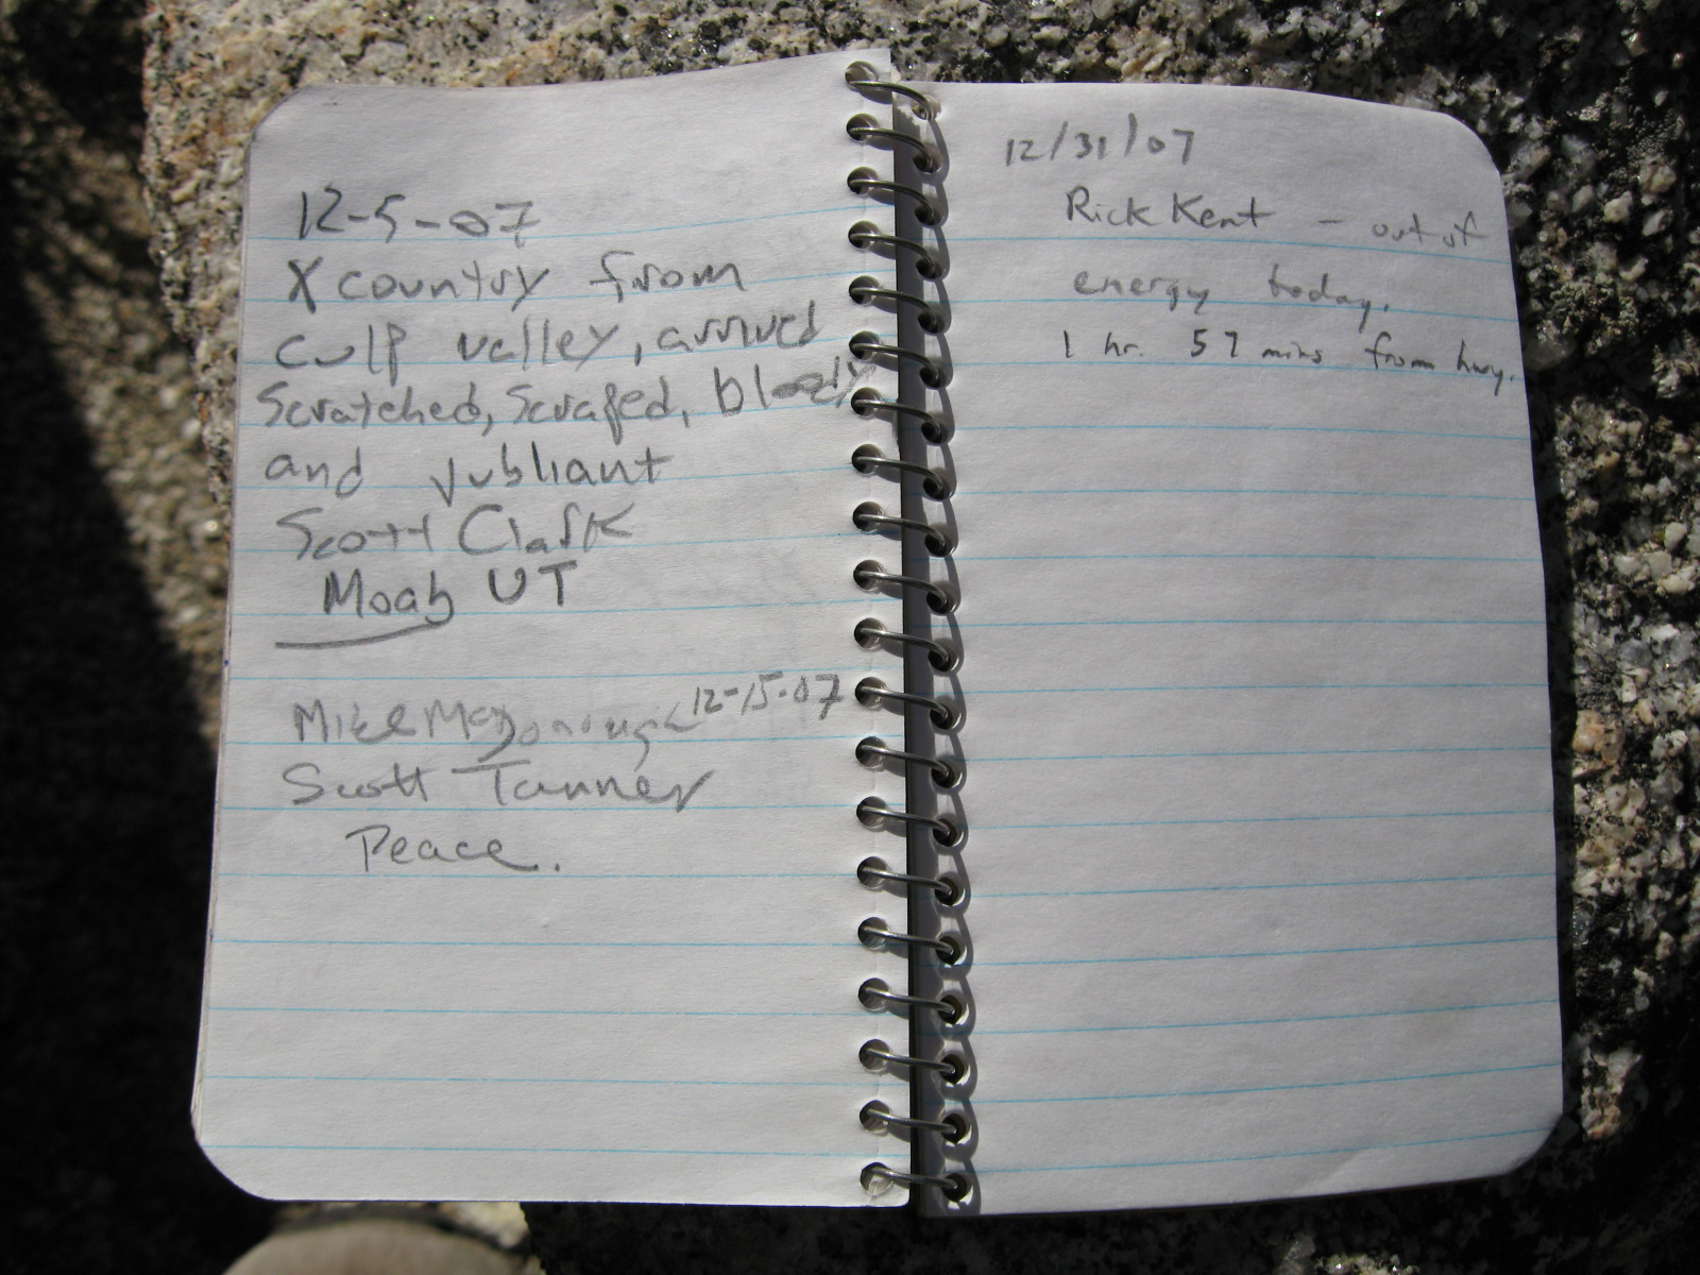 12-5-07
X country from
Culp valley, arrived
Scratched, Scraped, bloody
and jubliant
Scott Clark
Moab UT
Mike McDonough 12-15-07
Scott Tanner
Peace.
12/31/07
Rick Kent - out of
energy today.
1 hr. 57 mins from hwy.